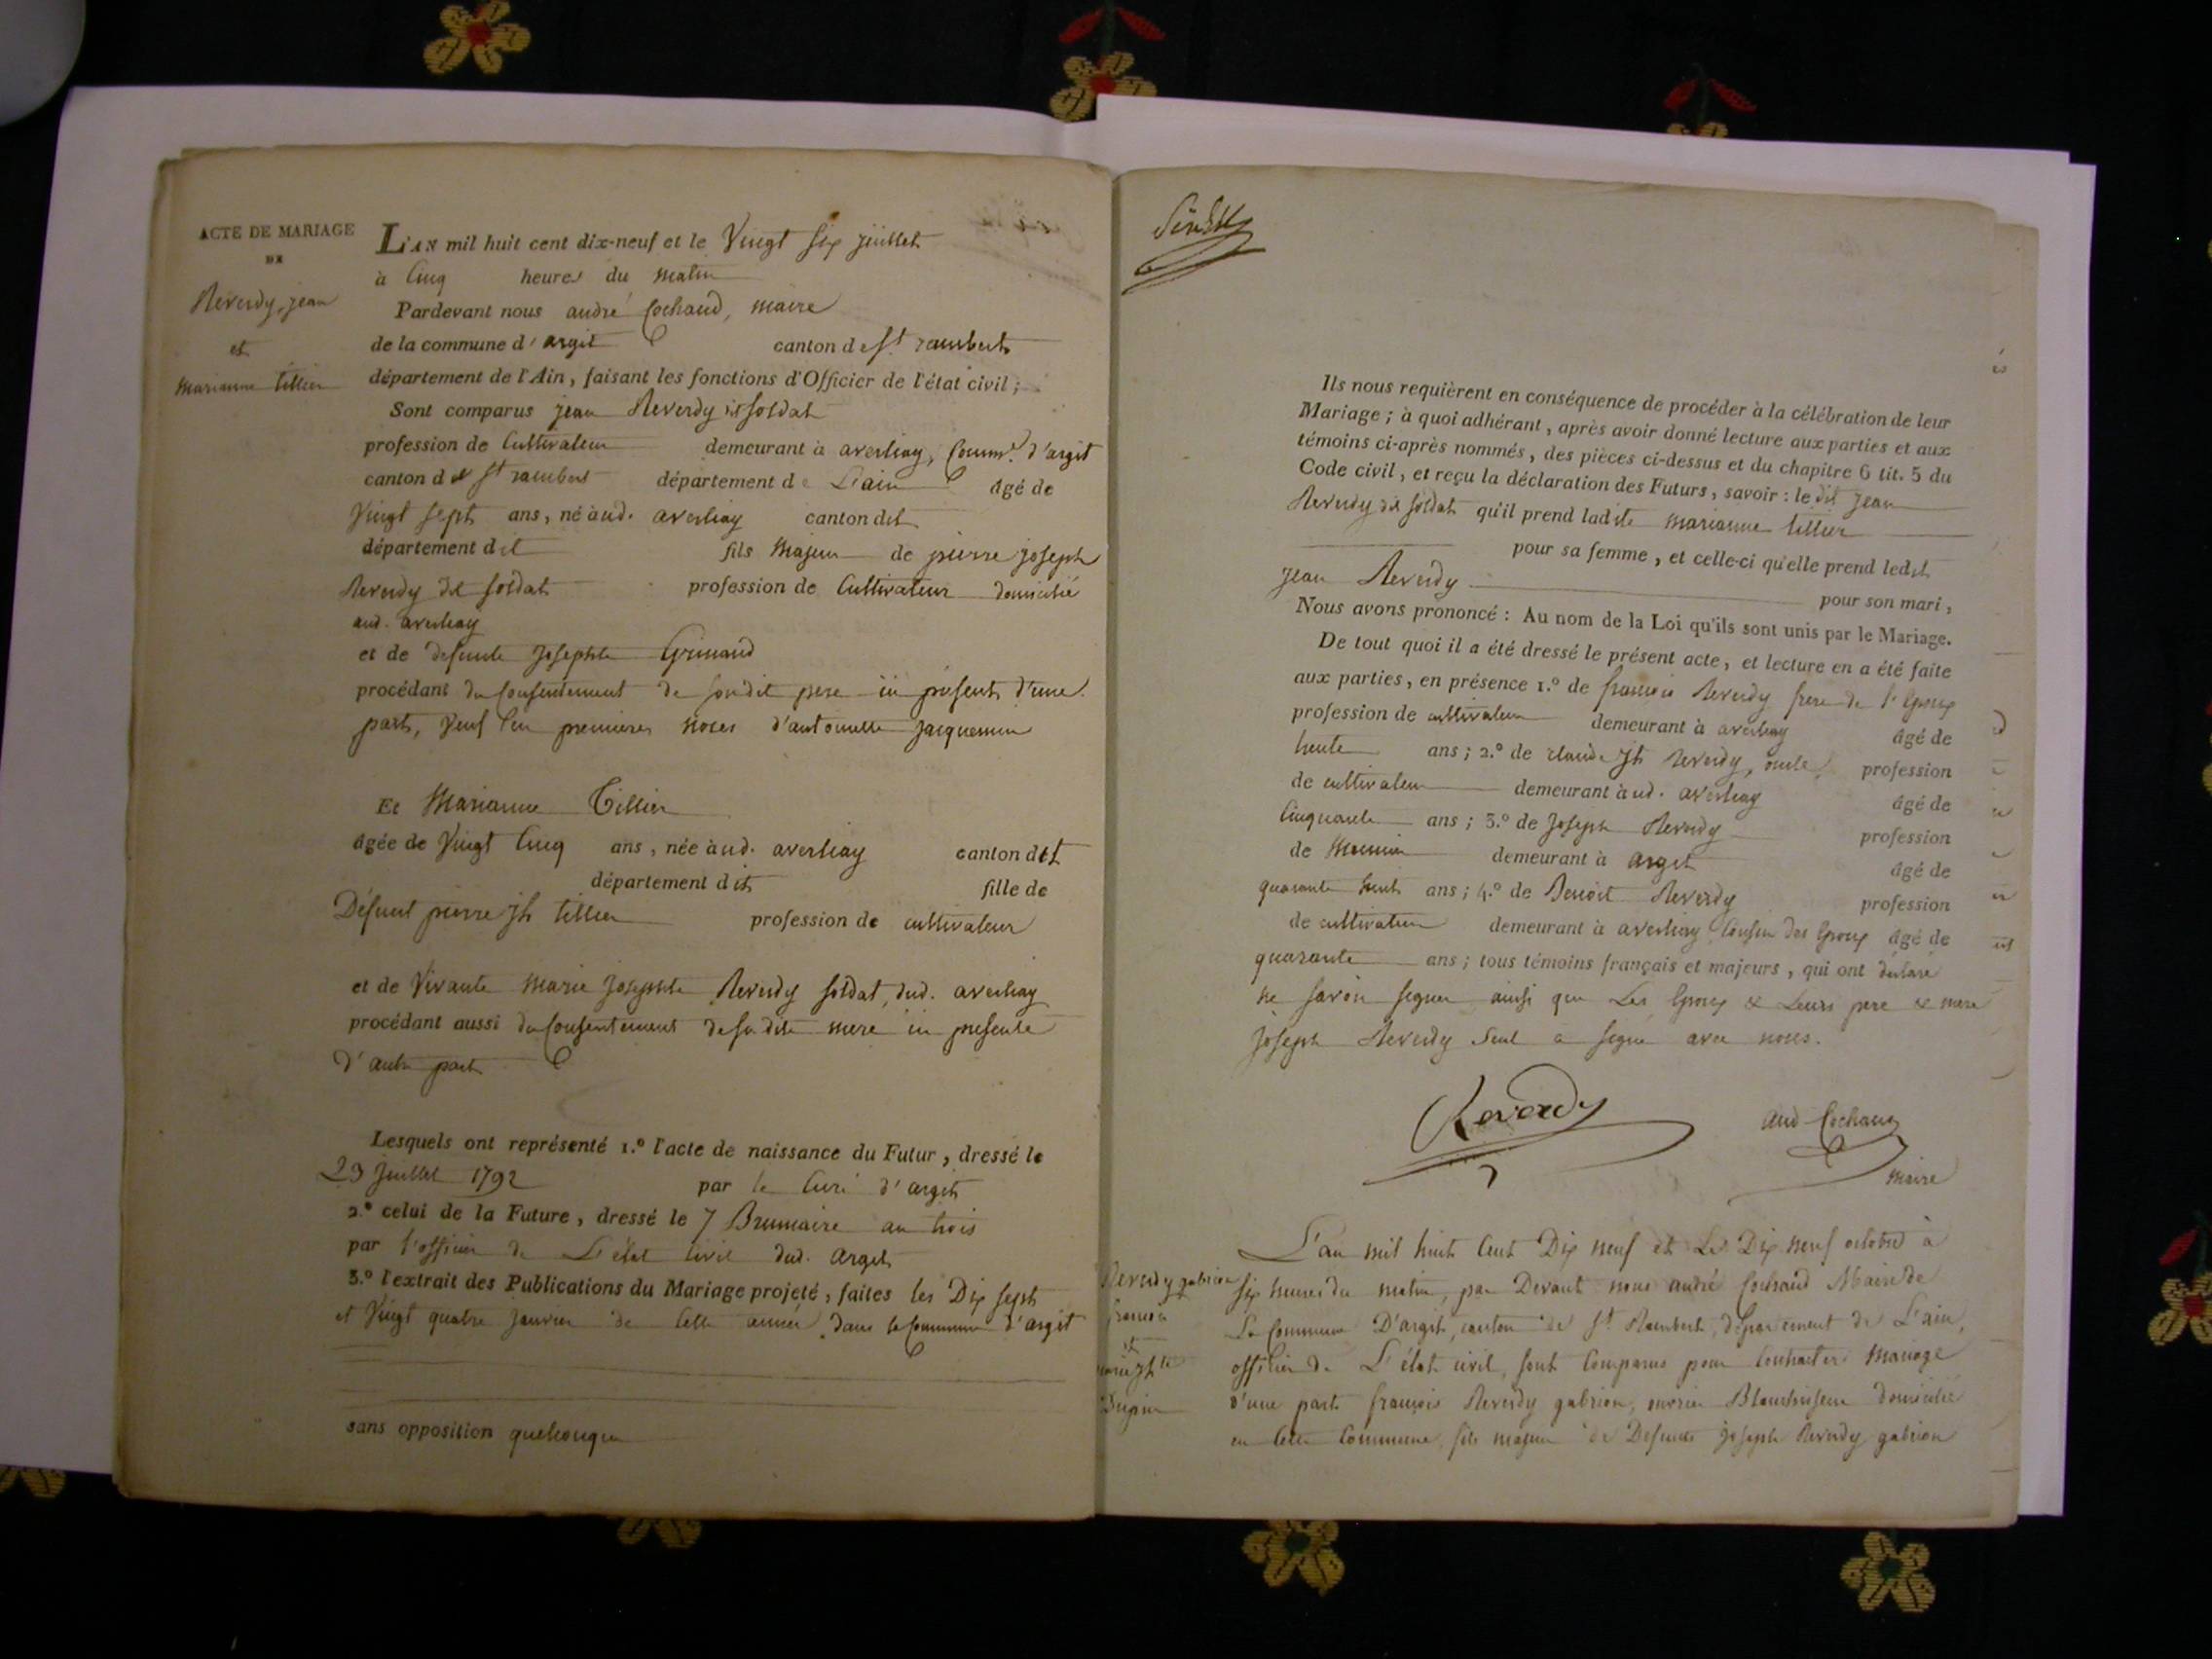 ACTE DE MARIAGE
DE
Reverdy, jean
et
marianne tillier
L'AN mil huit cent dix-neuf et le Vingt six juillet
à Cinq heures du matin
Pardevant nous andré Cochaud, maire
de la commune d'argit canton de St. rambert
département de l'Ain, faisant les fonctions d'Officier de l'état civil;
Sont comparus jean Reverdy dit soldat
profession de Cultivateur demeurant à averliay, Comm.e d'argit
canton de St rambert département de L'ain âgé de
Vingt sept ans, né à ud. averliay canton dit
département dit fils Majeur de pierre joseph
Reverdy dit soldat profession de Cultivateur domicilié
aud. averliay
et de defunte Josephte Grimaud
procédant du Consentement de sondit pere ici présent d'une
part, Veuf en premieres noces d'antoinette Jacquemin
Et Marianne Tillier
âgée de Vingt Cinq ans, née à ud. averliay canton dit
département dit fille de
Défunt pierre Jh tillier profession de cultivateur
et de Vivante marie josephte Reverdy soldat, dud. averliay
procédant aussi du Consentement de sadite mere ici presente
d'autre part
Lesquels ont représenté 1.º l'acte de naissance du Futur, dressé le
23 juillet 1792 par le Curé d'argit
2.º celui de la Future, dressé le 7 Brumaire an trois
par l'officier de L'état civil dud. argit
3.º l'extrait des Publications du Mariage projeté, faites les Dix sept
et Vingt quatre janvier de cette année, dans la Commune d'argit
sans opposition quelconque
Ils nous requièrent en conséquence de procéder à la célébration de leur
Mariage; à quoi adhérant, après avoir donné lecture aux parties et aux
témoins ci-après nommés, des pièces ci-dessus et du chapitre 6 tit. 5 du
Code civil, et reçu la déclaration des Futurs, savoir: le dit Jean
Reverdy dit soldat qu'il prend ladite marianne tillier
pour sa femme, et celle-ci qu'elle prend ledit
Jean Reverdy pour son mari,
Nous avons prononcé: Au nom de la Loi qu'ils sont unis par le Mariage.
De tout quoi il a été dressé le présent acte, et lecture en a été faite
aux parties, en présence 1.º de francois Reverdy frere de l'Epoux
profession de cultivateur demeurant à averliay âgé de
trente ans; 2.º de claude Jh Reverdy, oncle, profession
de cultivateur demeurant à ud. averliay âgé de
Cinquante ans; 3.º de Joseph Reverdy profession
de Meunier demeurant à argit âgé de
quarante huit ans; 4.º de Benoit Reverdy profession
de cultivateur demeurant à averliay Cousin des Epoux âgé de
quarante ans; tous témoins français et majeurs, qui ont déclaré
ne savoir signer ainsi que Les Epoux & Leurs pere & mere
joseph Reverdy seul a signé avec nous.
Reverdy
And Cochaud
maire
Reverdy gabrion
francois
et
marie Jhte
Dupin
L'an mil huit Cent Dix neuf et Le Dix neuf octobre à
six heures du matin, par Devant nous andré Cochaud Maire de
La Commune D'argit, canton de St Rambert, département de L'ain,
officier de L'état civil, sont Comparus pour Contracter mariage
d'une part francois Reverdy gabrion, ouvrier Blanchisseur domicilié
en Cette Commune, fils majeur de Defunts Joseph Reverdy gabrion